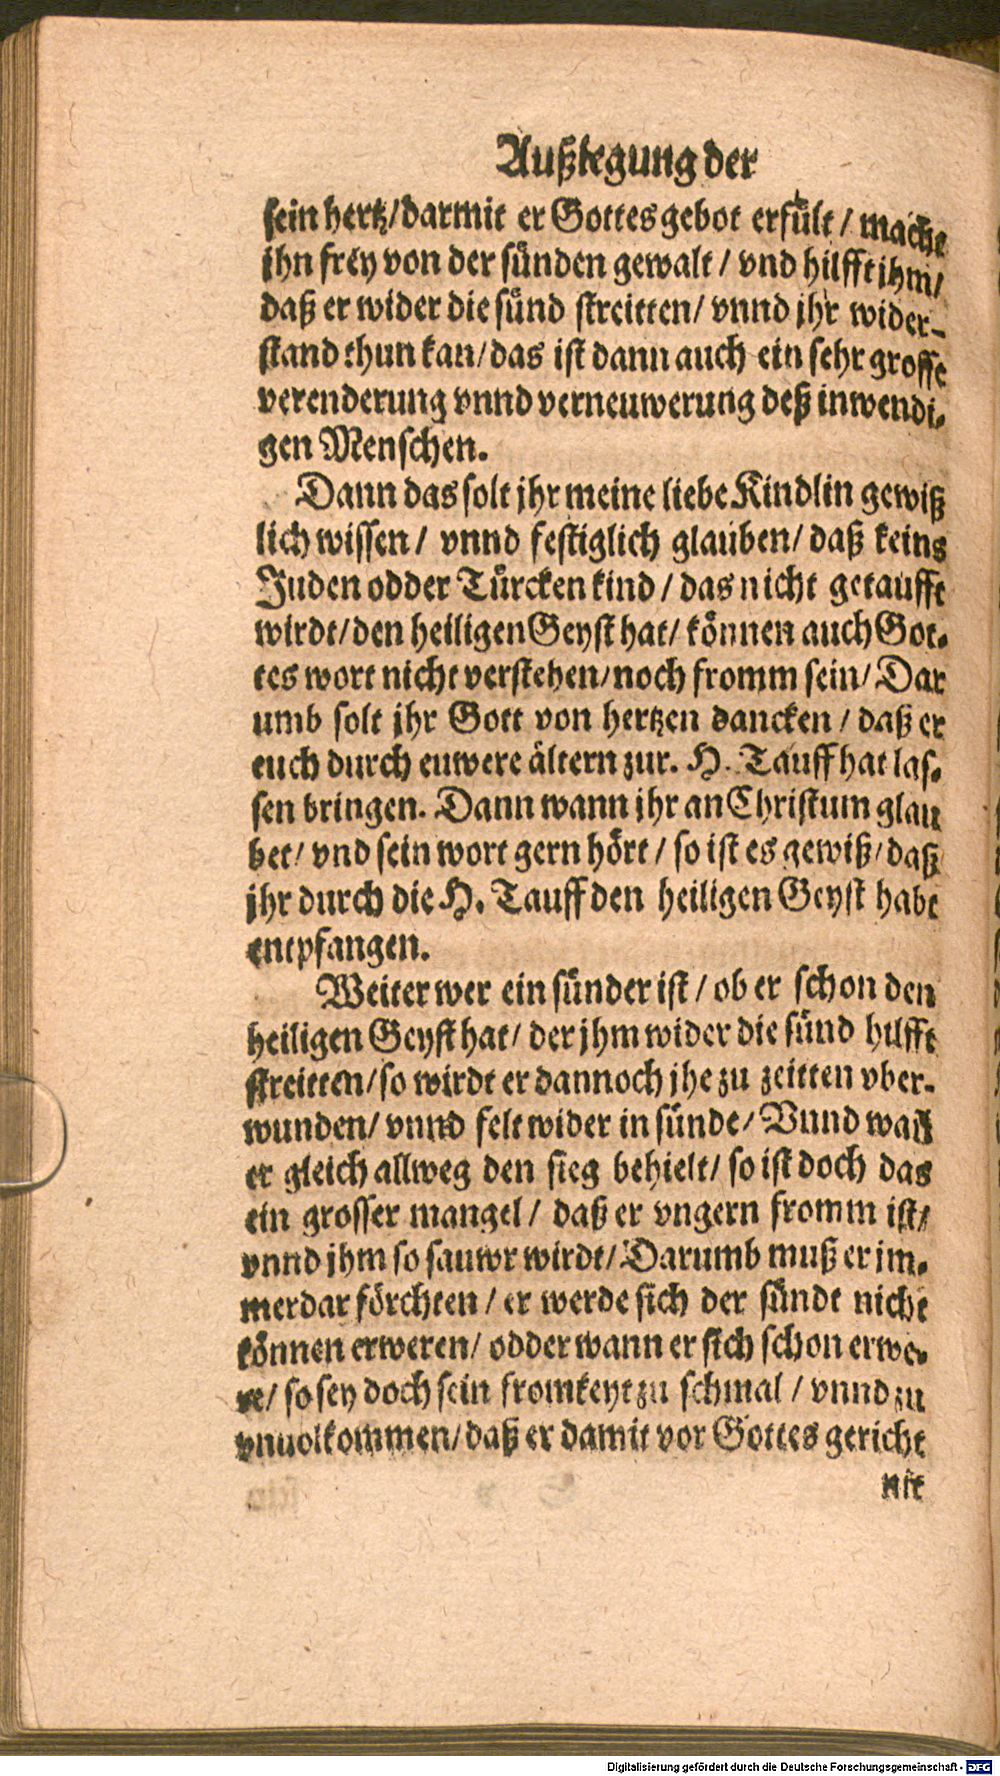 Außlegung der
sein hertz/darmit er Gottes gebot erfült / mache
jhn frey von der sünden gewalt / vnd hilfft jhm/
daß er wider die sünd streitten/ vnnd jhr wider-
stand thun kan/das ist dann auch ein sehr grosse
verenderung vnnd verneuwerung deß inwendi-
gen Menschen.
Dann das solt jhr meine liebe Kindlin gewiß
lich wissen/ vnnd festiglich glauben/ daß keins
Juden odder Türcken kind / das nicht getaufft
wirdt/den heiligen Geyst hat/ können auch Got-
tes wort nicht verstehen/noch fromm sein/ Dar
umb solt jhr Gott von hertzen dancken / daß er
euch durch euwere ältern zur. H. Tauff hat las-
sen bringen. Dann wann jhr an Christum glau
bet/ vnd sein wort gern hört / so ist es gewiß/daß
jhr durch die H. Tauff den heiligen Geyst habt
entpfangen.
Weiter wer ein sünder ist / ob er schon den
heiligen Geyst hat/ der jhm wider die sünd hilfft
streitten/so wirdt er dannoch jhe zu zeitten vber-
wunden/ vnnd felt wider in sünde/ Vnnd wañ
er gleich allweg den sieg behielt/ so ist doch das
ein grosser mangel / daß er vngern fromm ist/
vnnd jhm so sauwr wirdt/ Darumb muß er im-
merdar förchten / er werde sich der sündt nicht
können erweren/ odder wann er sich schon erwe-
re/ so sey doch sein fromkeyt zu schmal / vnnd zu
vnuolkommen/daß er damit vor Gottes gericht
nit
Digitalisierung gefördert durch die Deutsche Forschungsgemeinschaft - DFG